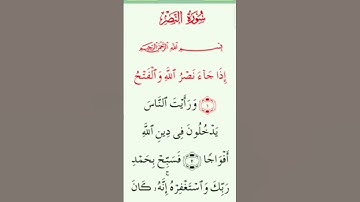 سُورَةُ النَّصْرِ
بِسْمِ اللَّهِ الرَّحْمَٰنِ الرَّحِيمِ
إِذَا جَآءَ نَصْرُ ٱللَّهِ وَٱلْفَتْحُ
﴿١﴾ وَرَأَيْتَ ٱلنَّاسَ
يَدْخُلُونَ فِى دِينِ ٱللَّهِ
أَفْوَاجًا ﴿٢﴾ فَسَبِّحْ بِحَمْدِ
رَبِّكَ وَٱسْتَغْفِرْهُ ۚ إِنَّهُۥ كَانَ